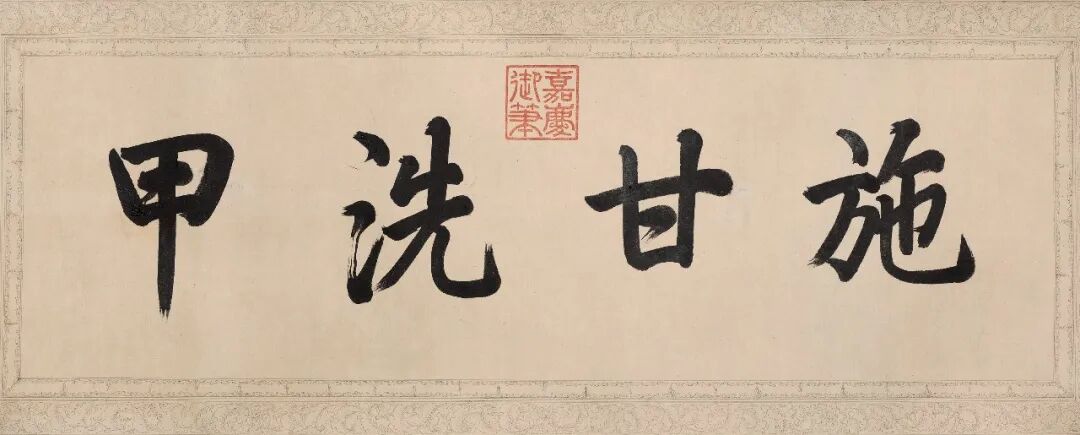 施甘洗甲
嘉慶御筆